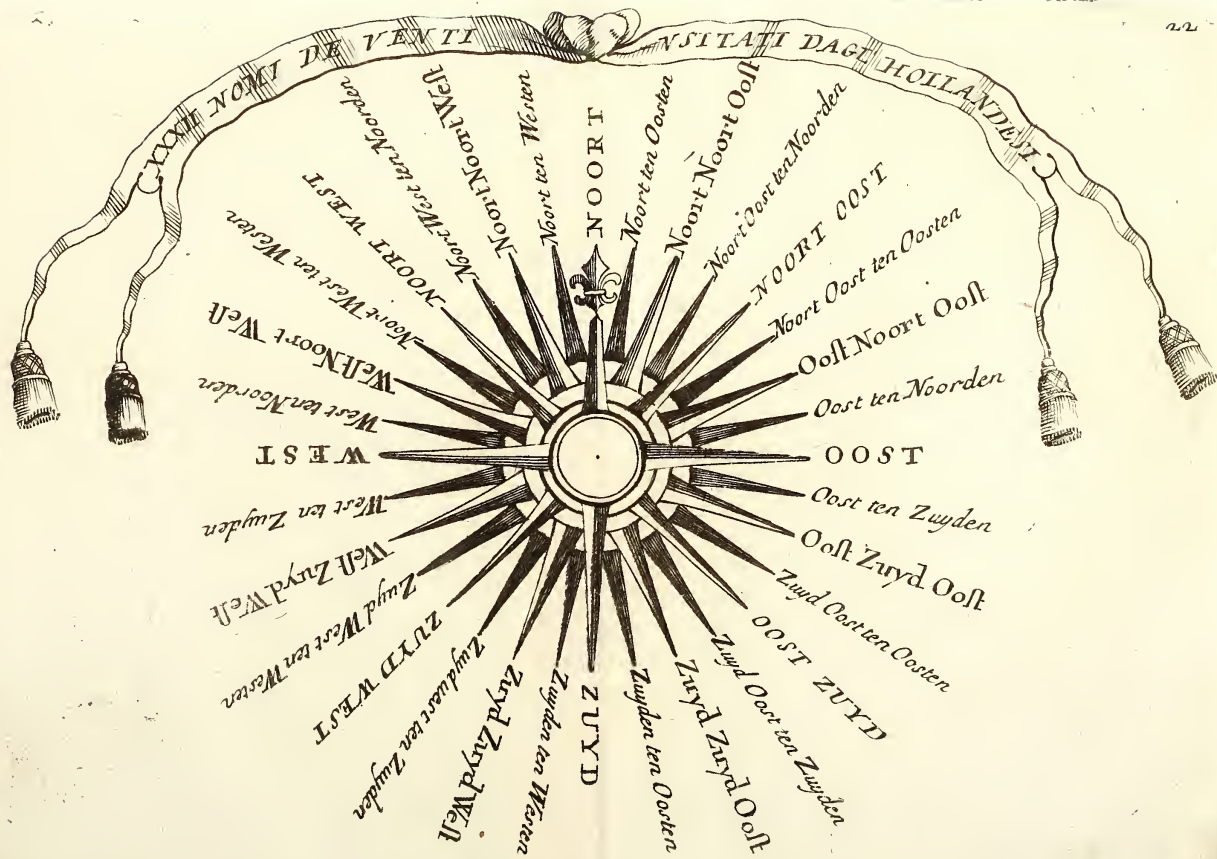 22
XXXII NOMI DE VENTI VSITATI DAGL HOLLANDESI
NOORT
Noort ten Oosten
Noort Noort Oost
Noort Oost ten Noorden
NOORT OOST
Noort Oost ten Oosten
Oost Noort Oost
Oost ten Noorden
OOST
Oost ten Zuyden
Oost Zuyd Oost
Zuyd Oost ten Oosten
OOST ZUYD
Zuyd Oost ten Zuyden
Zuyd Zuyd Oost
Zuyden ten Oosten
ZUYD
Zuyden ten Westen
Zuyd Zuyd West
Zuyd west ten Zuyden
ZUYD WEST
Zuyd West ten Westen
West Zuyd West
West ten Zuyden
WEST
West ten Noorden
West Noort West
Noort West ten Westen
NOORT WEST
Noort West ten Noorden
Noort Noort West
Noort ten Westen